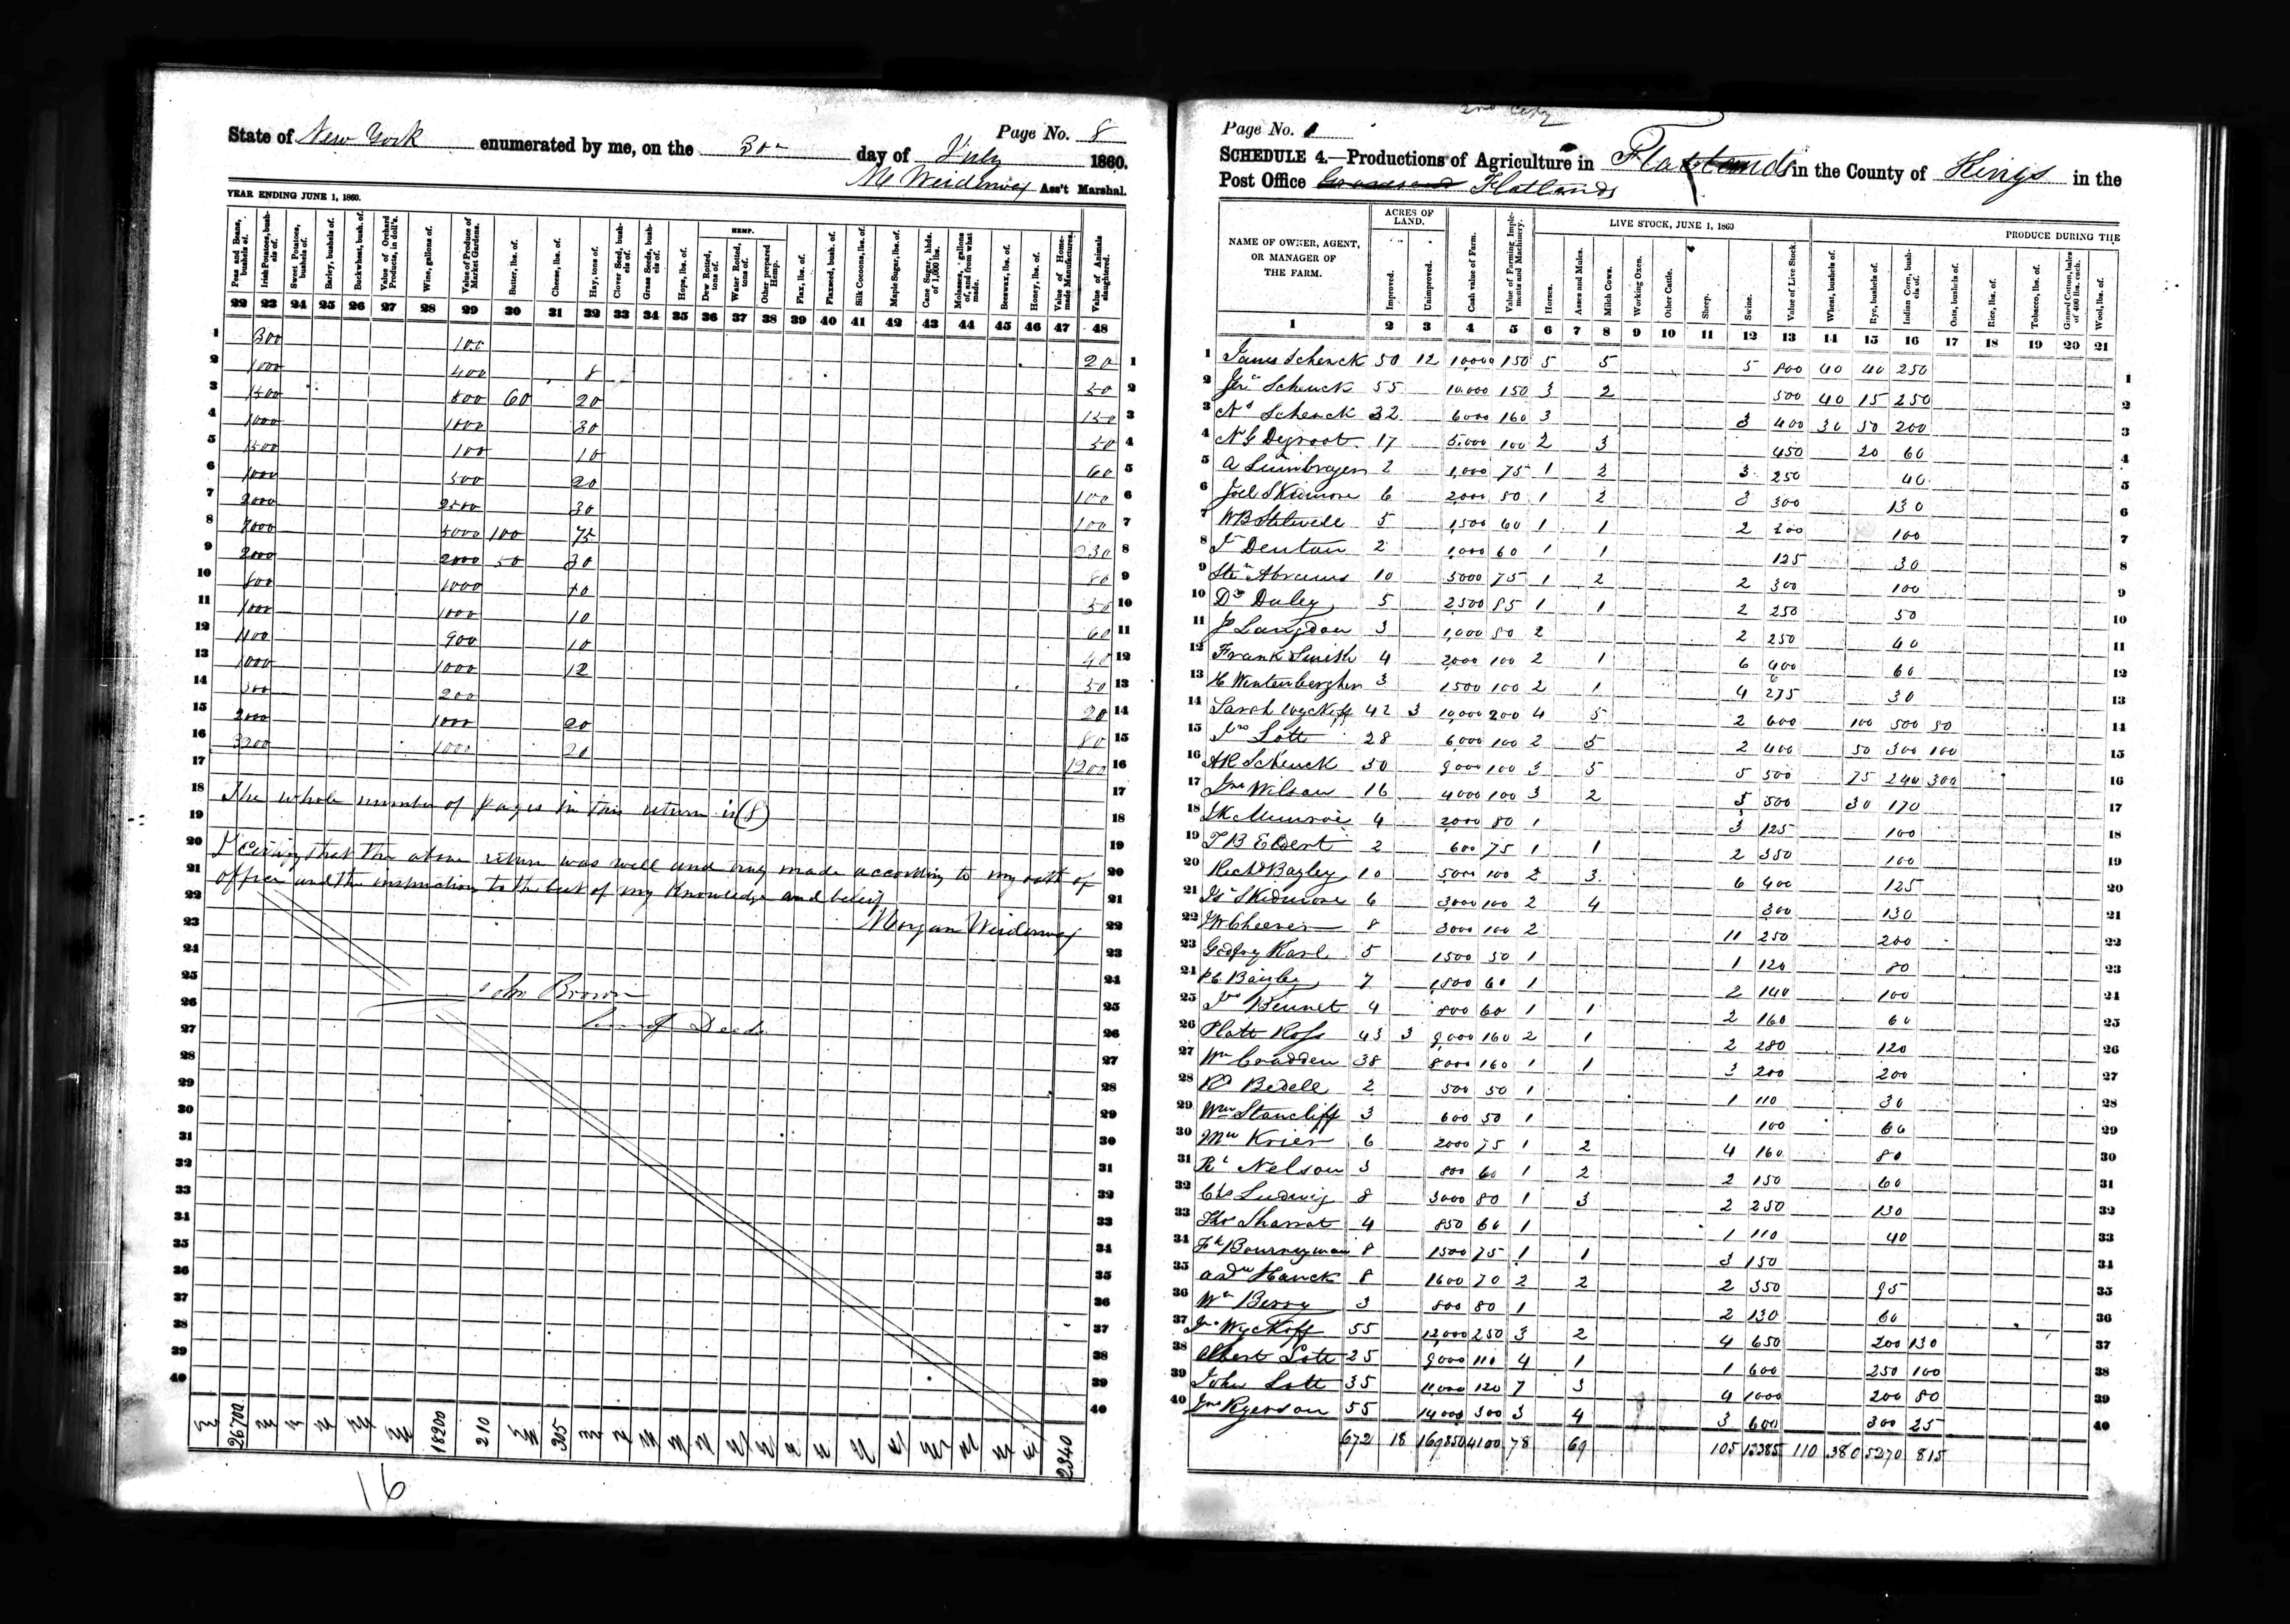 State of New York enumerated by me, on the 30 day of July 1860. Page No. 8
M Weidenway Ass't Marshal.
YEAR ENDING JUNE 1, 1860.
Peas and Beans, bushels of.
Irish Potatoes, bushels of.
Sweet Potatoes, bushels of.
Barley, bushels of.
Buckwheat, bush. of.
Value of Orchard Products, in doll's.
Wine, gallons of.
Value of Produce of Market Gardens.
Butter, lbs. of.
Cheese, lbs. of.
Hay, tons of.
Clover Seed, bushels of.
Grass Seeds, bushels of.
Hops, lbs. of.
HEMP.
Dew Rotted, tons of.
Water Rotted, tons of.
Other prepared Hemp.
Flax, lbs. of.
Flaxseed, bush. of.
Silk Cocoons, lbs. of.
Maple Sugar, lbs. of.
Cane Sugar, hhds. of 1,000 lbs.
Molasses, gallons of, and from what made.
Beeswax, lbs. of.
Honey, lbs. of.
Value of Home-made Manufactures.
Value of Animals slaughtered.
22 23 24 25 26 27 28 29 30 31 32 33 34 35 36 37 38 39 40 41 42 43 44 45 46 47 48
1 300 100 20 1
2 1000 400 8 50 2
3 1500 800 60 20 150 3
4 1000 1000 30 50 4
5 1500 100 10 60 5
6 1000 500 20 100 6
7 2000 2500 30 100 7
8 7000 5000 100 75 230 8
9 2000 2000 50 30 80 9
10 800 1000 10 50 10
11 1000 1000 10 60 11
12 1100 900 10 40 12
13 1000 1000 12 50 13
14 300 200 20 14
15 2000 1000 20 80 15
16 3200 1000 20 1200 16
17 17
18 The whole number of pages in this return is (8) 18
19 19
20 I certify that the above return was well and truly made according to my oath of 20
21 office and the instructions to the best of my Knowledge and belief 21
22 Morgan Weidenway 22
23 23
24 24
25 John Brown 25
26 Deeds 26
27 27
28 28
29 29
30 30
31 31
32 32
33 33
34 34
35 35
36 36
37 37
38 38
39 39
40 40
26700 18200 210 305 2340
16
2nd Copy
Page No. 1
SCHEDULE 4.—Productions of Agriculture in Flatlands in the County of Kings in the
Post Office Flatlands
NAME OF OWNER, AGENT, OR MANAGER OF THE FARM.
ACRES OF LAND.
Improved.
Unimproved.
Cash value of Farm.
Value of Farming Implements and Machinery.
LIVE STOCK, JUNE 1, 1860
Horses.
Asses and Mules.
Milch Cows.
Working Oxen.
Other Cattle.
Sheep.
Swine.
Value of Live Stock.
PRODUCE DURING THE
Wheat, bushels of.
Rye, bushels of.
Indian Corn, bushels of.
Oats, bushels of.
Rice, lbs. of.
Tobacco, lbs. of.
Ginned Cotton, bales of 400 lbs. each.
Wool, lbs. of.
1 2 3 4 5 6 7 8 9 10 11 12 13 14 15 16 17 18 19 20 21
1 James Schenck 50 12 10000 150 5 5 5 800 40 40 250 1
2 Jno Schenck 55 10,000 150 3 2 500 40 15 250 2
3 Ns Schenck 32 6000 160 3 3 400 30 50 200 3
4 N G Degroot 17 5,000 100 2 3 450 20 60 4
5 A 2 1,000 75 1 2 3 250 40 5
6 Joel Skidmore 6 2000 80 1 2 3 300 130 6
7 W B Stilwell 5 1,500 60 1 1 2 200 100 7
8 Denton 2 1,000 60 1 1 125 30 8
9 Stn Abrams 10 5000 75 1 2 2 300 100 9
10 Dl Daley 5 2500 85 1 1 2 250 50 10
11 J Langdon 3 1,000 80 2 2 250 40 11
12 Frank Smith 4 2000 100 2 1 6 400 60 12
13 H Wentenbergher 3 1500 100 2 1 4 275 30 13
14 Sarah Wyckoff 42 3 10,000 200 4 5 2 600 100 500 50 14
15 Jno Lott 28 6,000 100 2 5 2 400 50 300 100 15
16 A R Schenck 30 9000 100 3 5 5 500 75 240 300 16
17 Jno Wilson 16 4000 100 3 2 5 500 30 170 17
18 Munroe 4 2000 80 1 3 125 100 18
19 T B Eldert 2 600 75 1 1 2 350 100 19
20 Richd Bagley 10 5000 100 2 3 6 400 125 20
21 Js Skidmore 6 3000 100 2 4 300 130 21
22 Cheever 8 3000 100 2 11 250 200 22
23 Godfrey Karl 5 1500 50 1 1 120 80 23
24 Bagley 7 1,500 60 1 2 140 100 24
25 Jno Bennet 4 800 60 1 1 2 160 60 25
26 Platt Ross 43 3 9,000 160 2 1 2 280 120 26
27 Wm Cradden 38 8000 160 1 1 3 200 200 27
28 Rd Bedell 2 500 50 1 1 110 30 28
29 Wm Stancliff 3 600 50 1 100 60 29
30 Mw Krier 6 2000 75 1 2 4 160 80 30
31 Rt Nelson 3 800 60 1 2 2 150 60 31
32 Chs Ludwig 8 3000 80 1 3 2 250 130 32
33 Thos Sharrat 4 850 60 1 1 110 40 33
34 Fk Bourneyman 8 1500 75 1 1 3 150 34
35 Andw Hanck 8 1600 70 2 2 2 350 95 35
36 Wm Berry 3 800 80 1 2 130 60 36
37 Jno Wyckoff 55 12,000 250 3 2 4 650 200 130 37
38 Albert Lott 25 9000 110 4 1 1 600 250 100 38
39 John Lott 35 11,000 120 7 3 4 1000 200 80 39
40 Jno Ryerson 55 14000 300 3 4 3 600 300 25 40
672 18 169850 4100 78 69 105 12385 110 380 5270 815